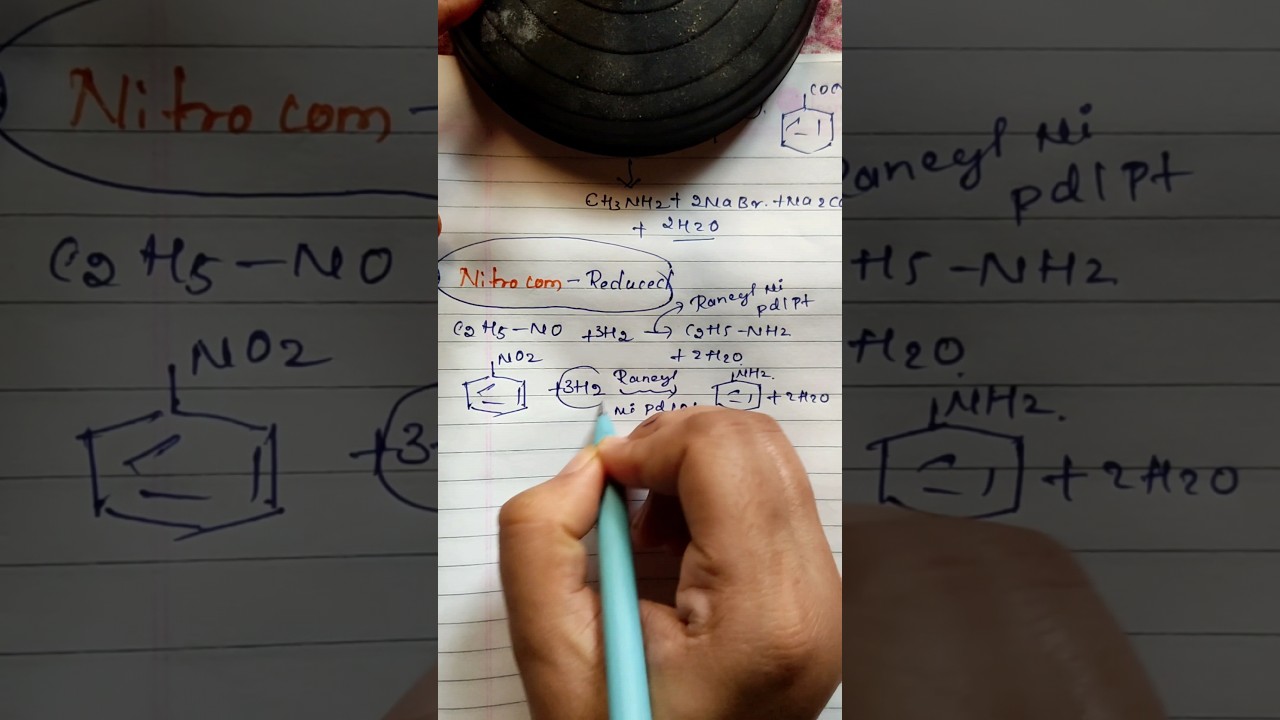 COO
CH3NH2 + 2NaBr. + Na2CO
+ 2H2O
Nitro com - Reduced
Raneyl Ni
pd/pt
C2H5-NO +3H2 → C2H5-NH2
+ 2H2O
NO2
NH2.
+3H2 Raneyl + 2H2O
Ni pd/pt